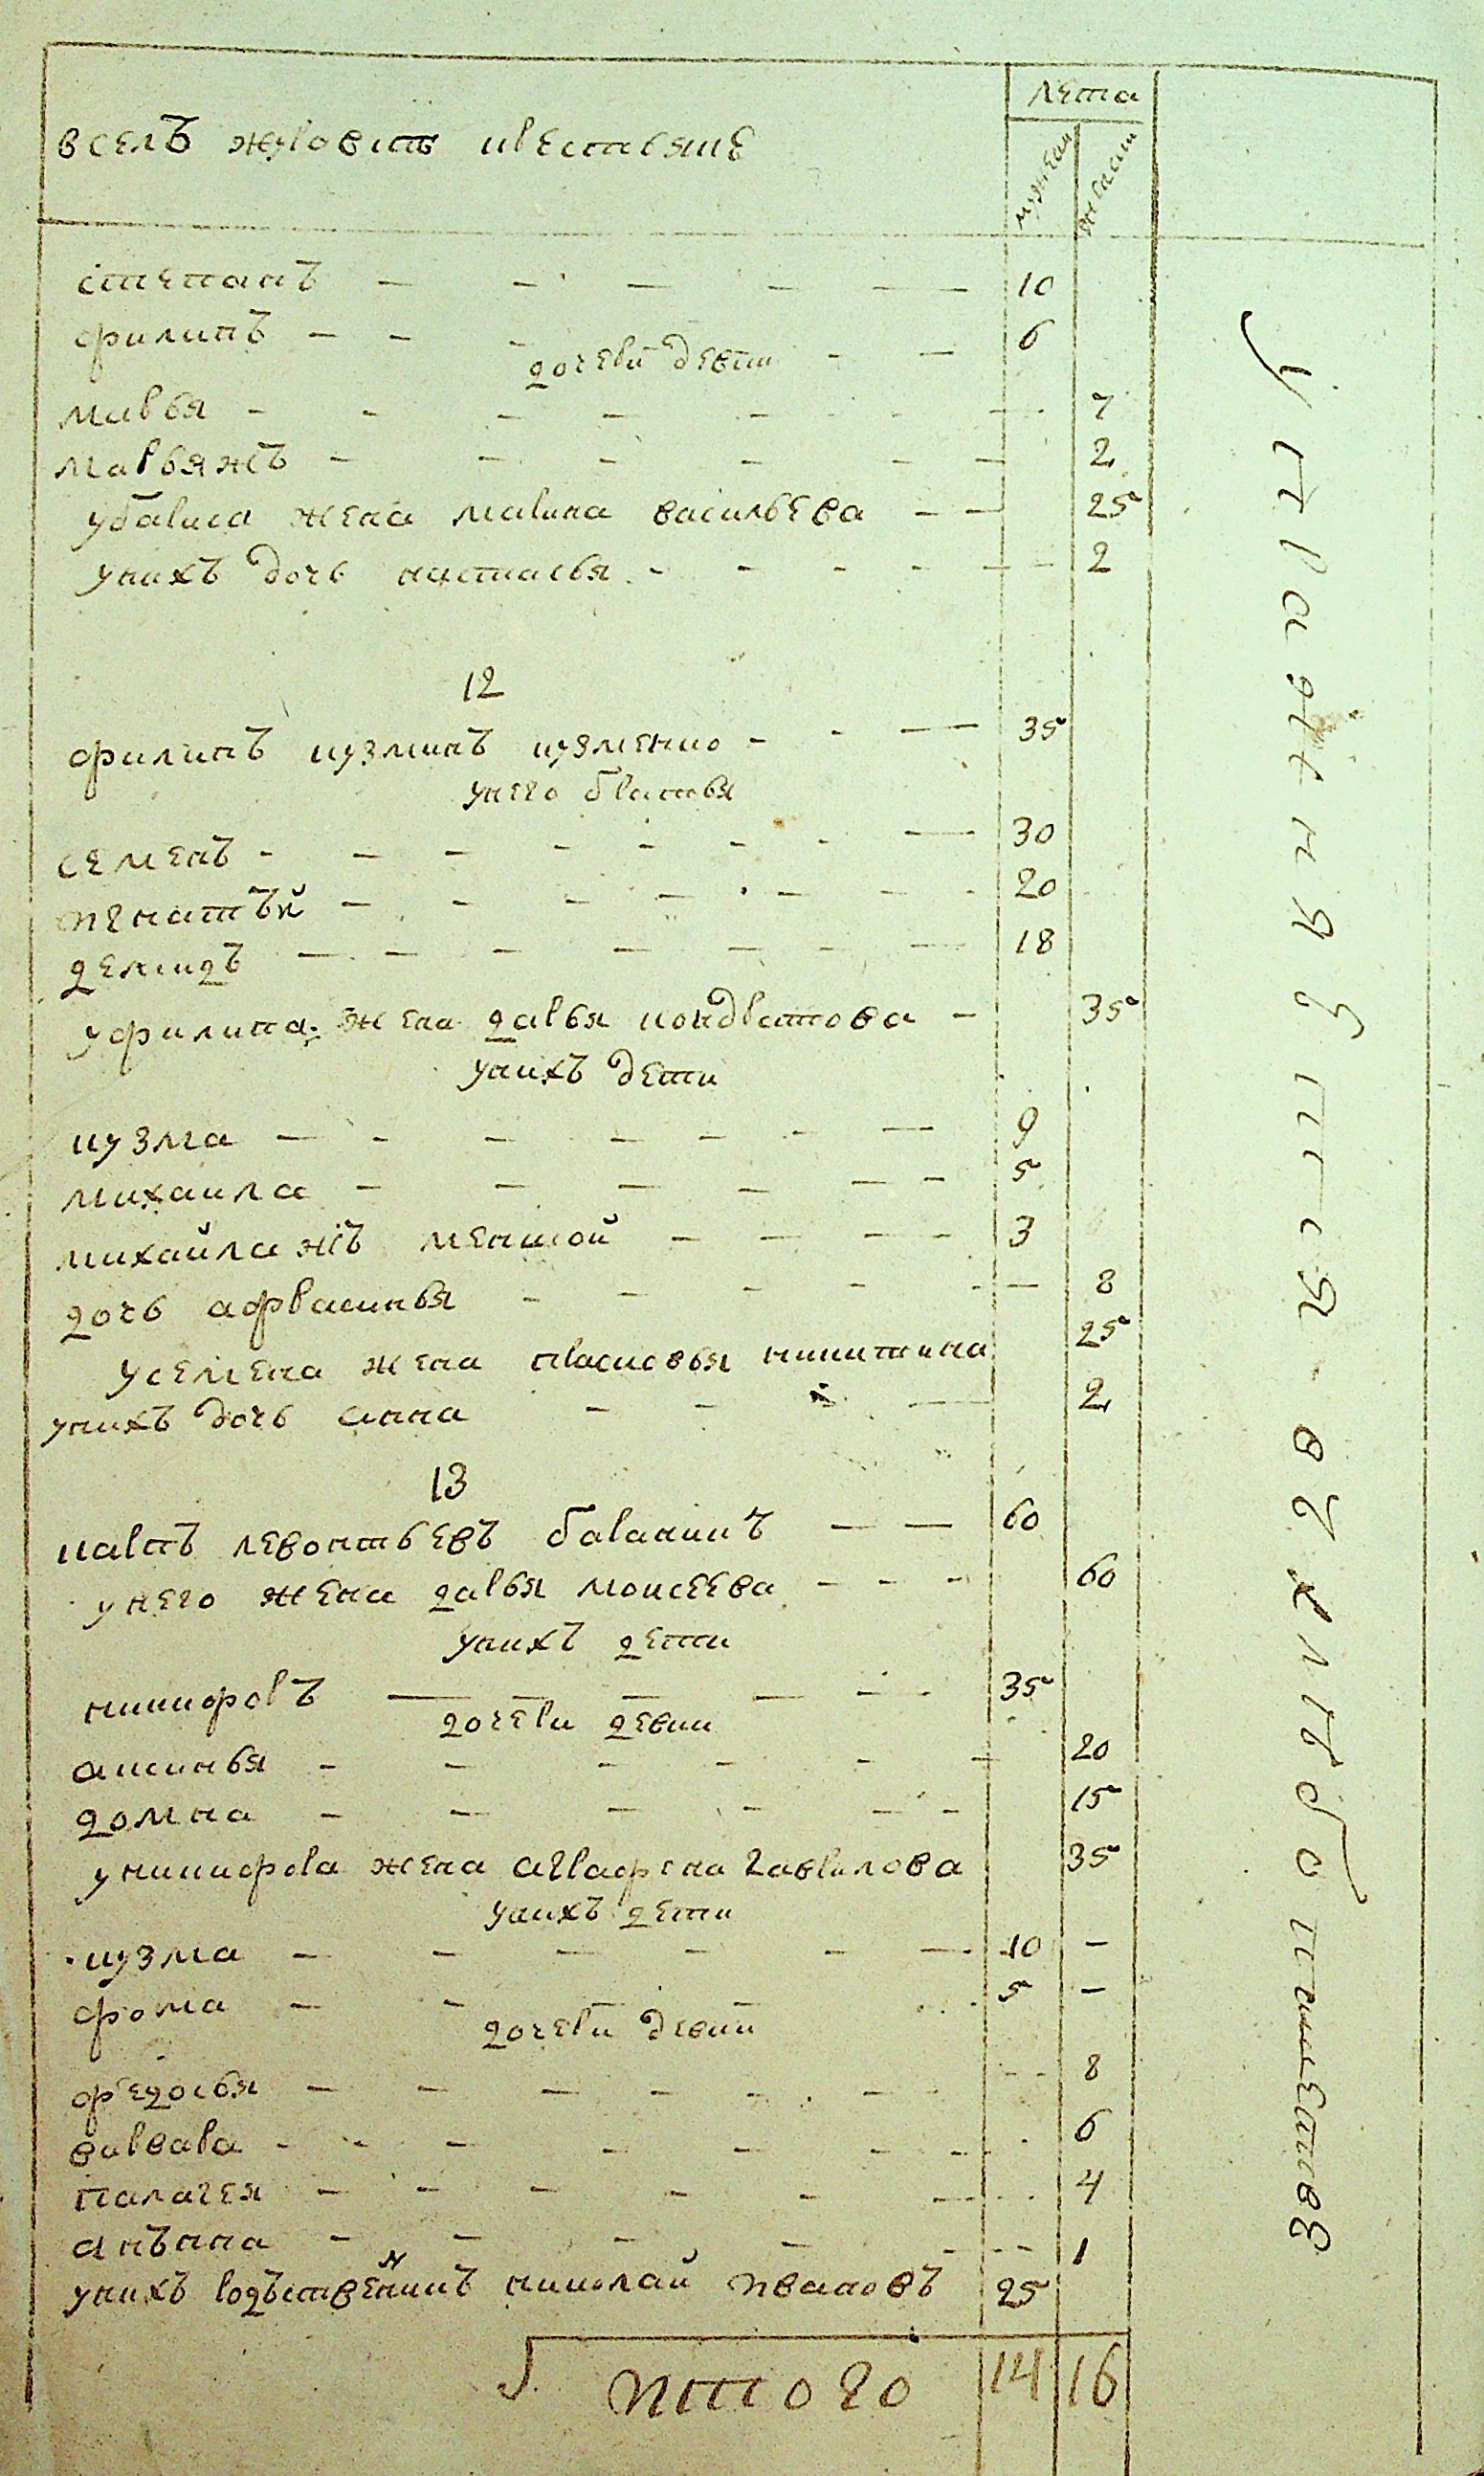 лета
в селѣ журовитъ крестьянѣ
мужеска
женска
степанъ — — — — — 10
филипъ — — — — 6
дочери девки
марья — — — — — — 7
марьяжъ — — — — — — 2
у бариса жена марина васильева — — 25
у нихъ дочь настасья — — — — — 2
12
филипъ кузминъ кузменко — — — 35
у него братья
семенъ — — — — — — — — 30
игнатѣй — — — — — — — 20
демидъ — — — — — — — 18
у филипа жена дарья кондратова — 35
у нихъ дети
кузма — — — — — — — 9
михаила — — — — — — 5
михайла жъ меншой — — — — 3
дочь афросинья — — — — — — 8
у семена жена прасковья никитина 25
у нихъ дочь анна — — — — 2
13
карпъ левонтьевъ баранникъ — — 60
у него жена дарья моисеева — — — 60
у нихъ дети
никифоръ — — — — — — 35
дочери девки
аксинья — — — — — — 20
домна — — — — — — 15
у никифора жена агрофена гаврилова 35
у нихъ дети
кузма — — — — — — 10 —
фома — — — — 5 —
дочери девки
федосья — — — — — — 8
варвара — — — — — — — 6
палагея — — — — — — 4
анъна — — — — — — 1
у нихъ родъственникъ николай ивановъ 25
итого 14 16